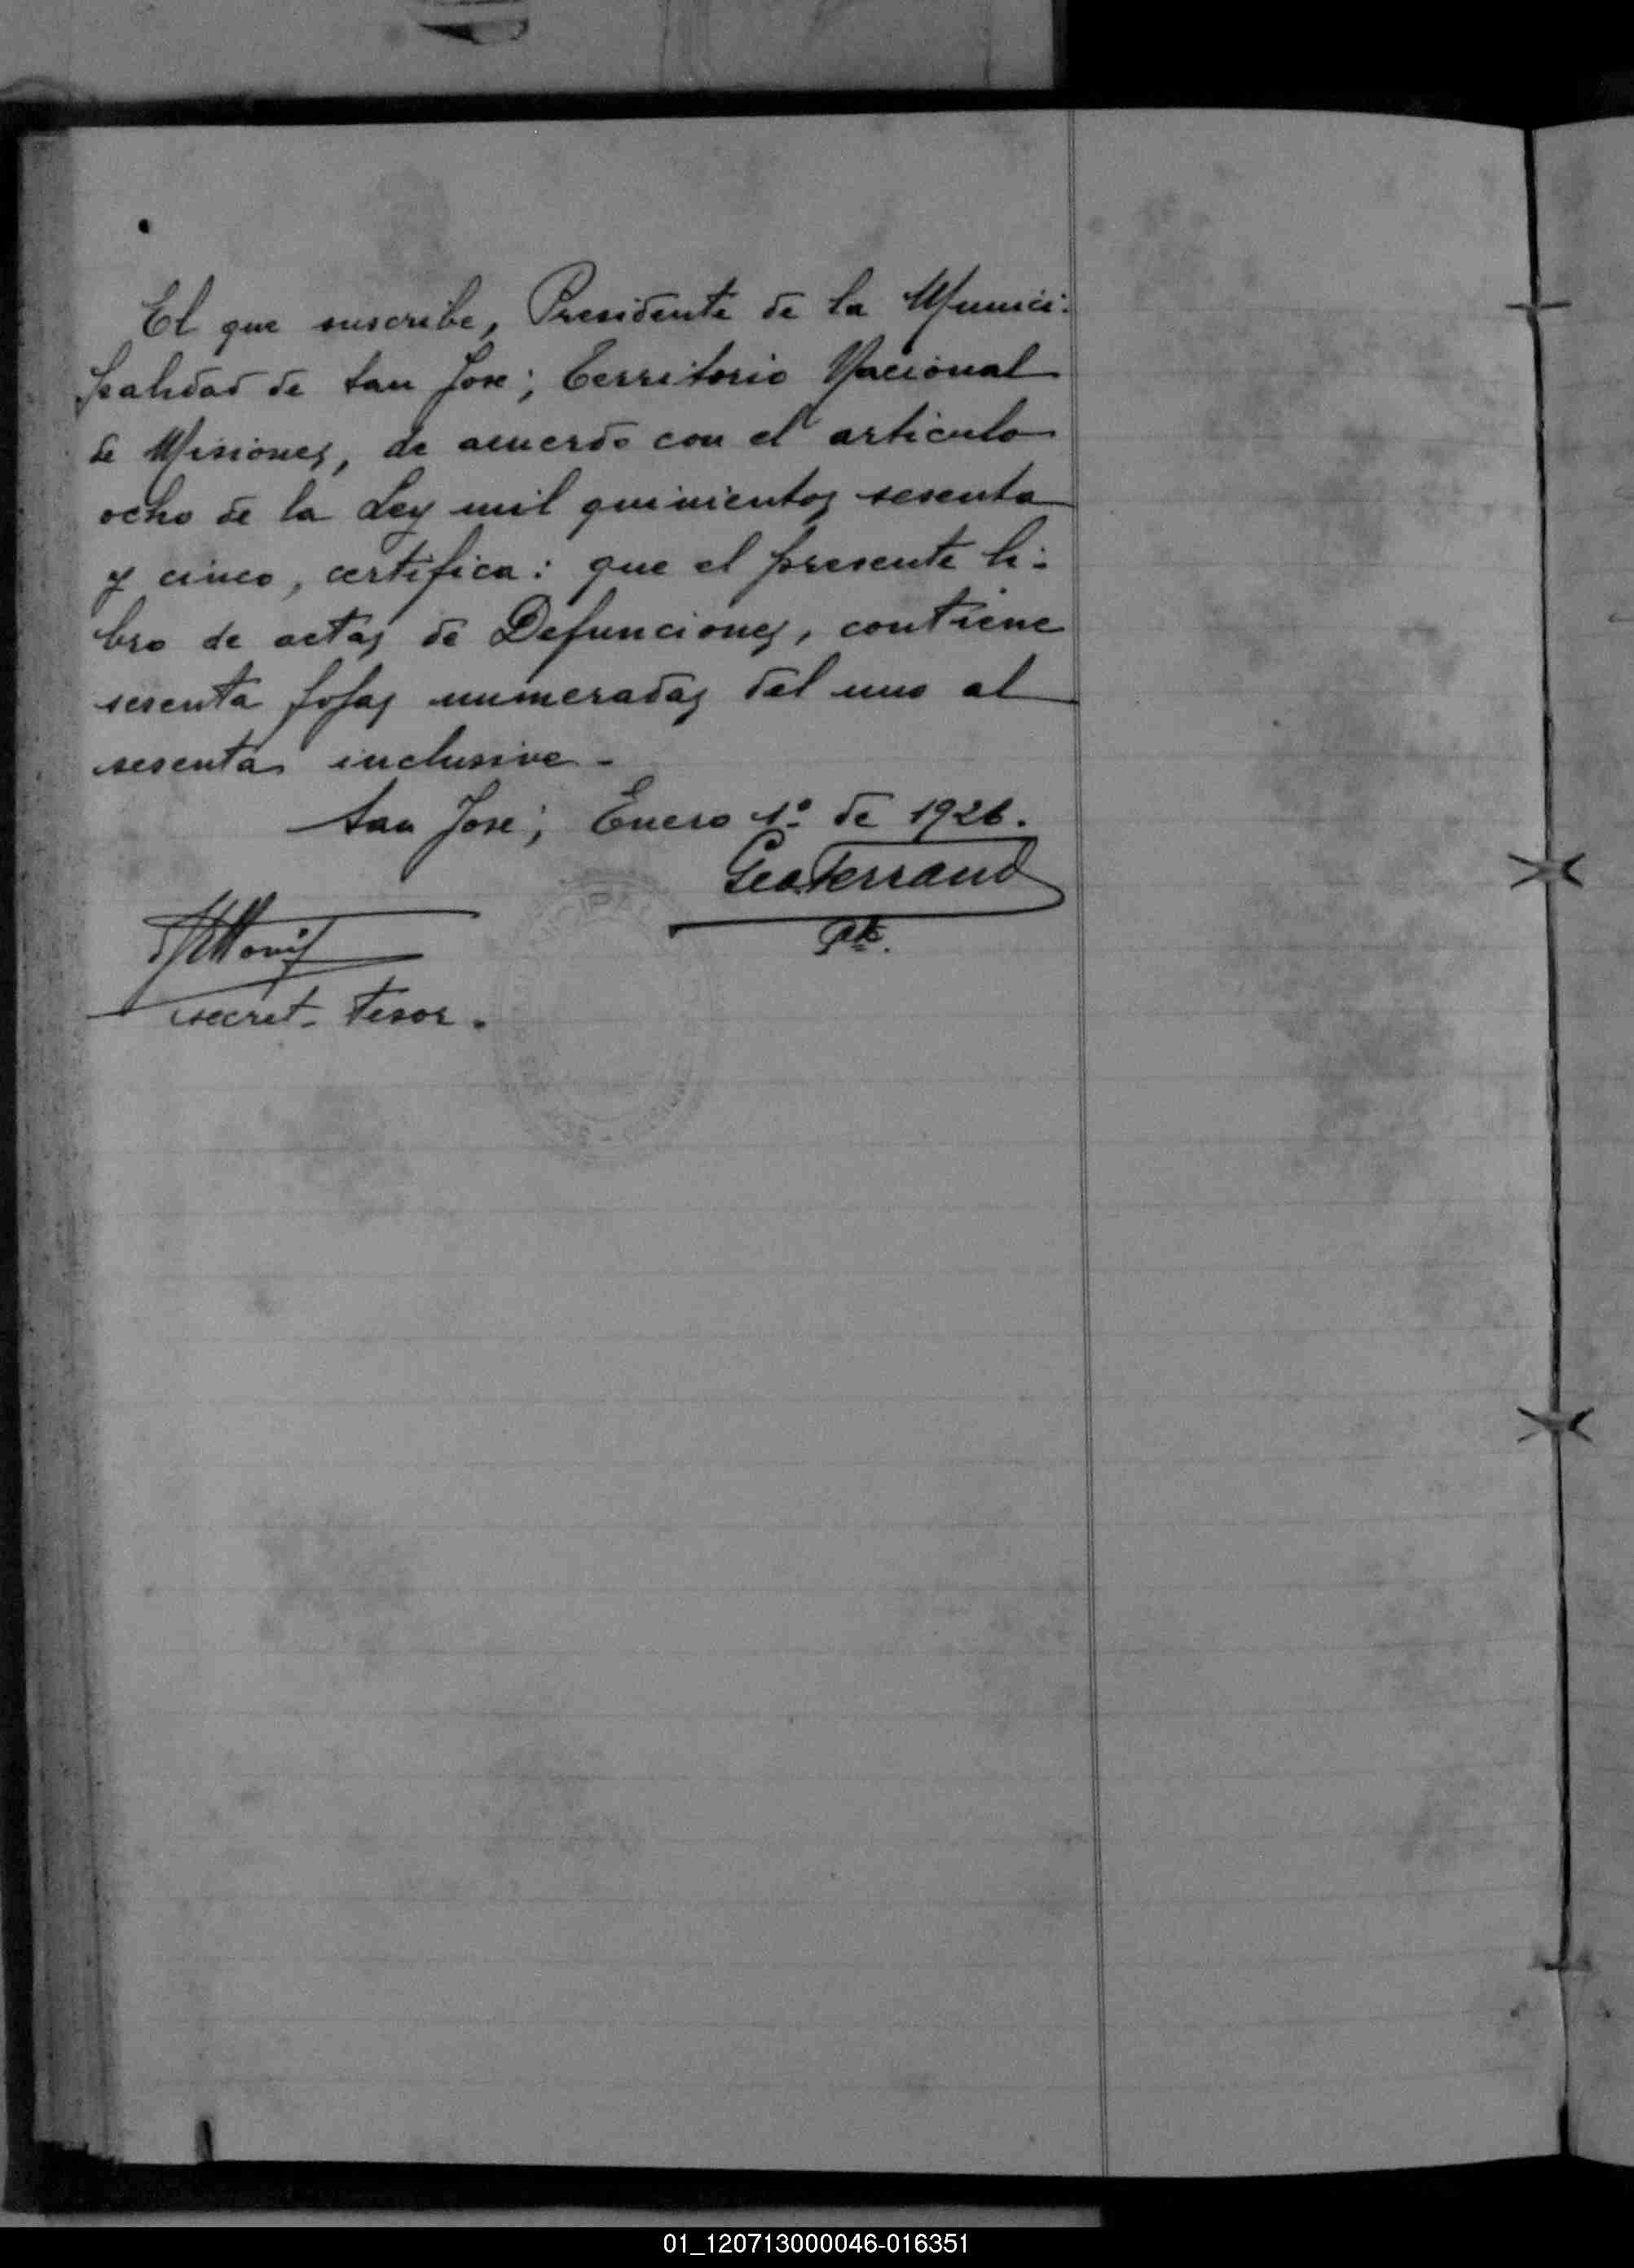 El que suscribe, Presidente de la Munici-
palidad de San José; Territorio Nacional
de Misiones, de acuerdo con el articulo
ocho de la Ley mil quinientos sesenta
y cinco, certifica: que el presente li-
bro de actas de Defunciones, contiene
sesenta fojas numeradas del uno al
sesenta inclusive -
San José; Enero 1º de 1926.
Pte.
secret. tesor.
01_120713000046-016351